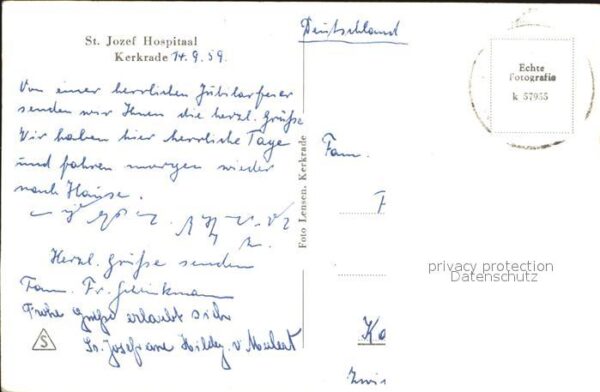 St. Jozef Hospitaal
Kerkrade 14.9.59.
Von einer herrlichen Jubilarfeier
senden wir Ihnen die herzl. Grüße
Wir haben hier herrliche Tage
und fahren morgen wieder
nach Hause.
Herzl. Grüße senden
Fam. Fr.
Frohe Grüße erlaubt sich
Sr. Josefiane Hildg. v.
S
Foto Lensen, Kerkrade
Deutschland
Echte
Fotografie
k 57955
Fam.
F
privacy protection
Datenschutz
Ko
Zwis